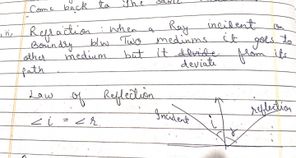 Come back to the same
Refraction : when a Ray incident on
Boundry b/w Two mediums it goes to
other medium but it deviate from its
path.
Law of Reflection
∠i = ∠r
Incident i r reflection